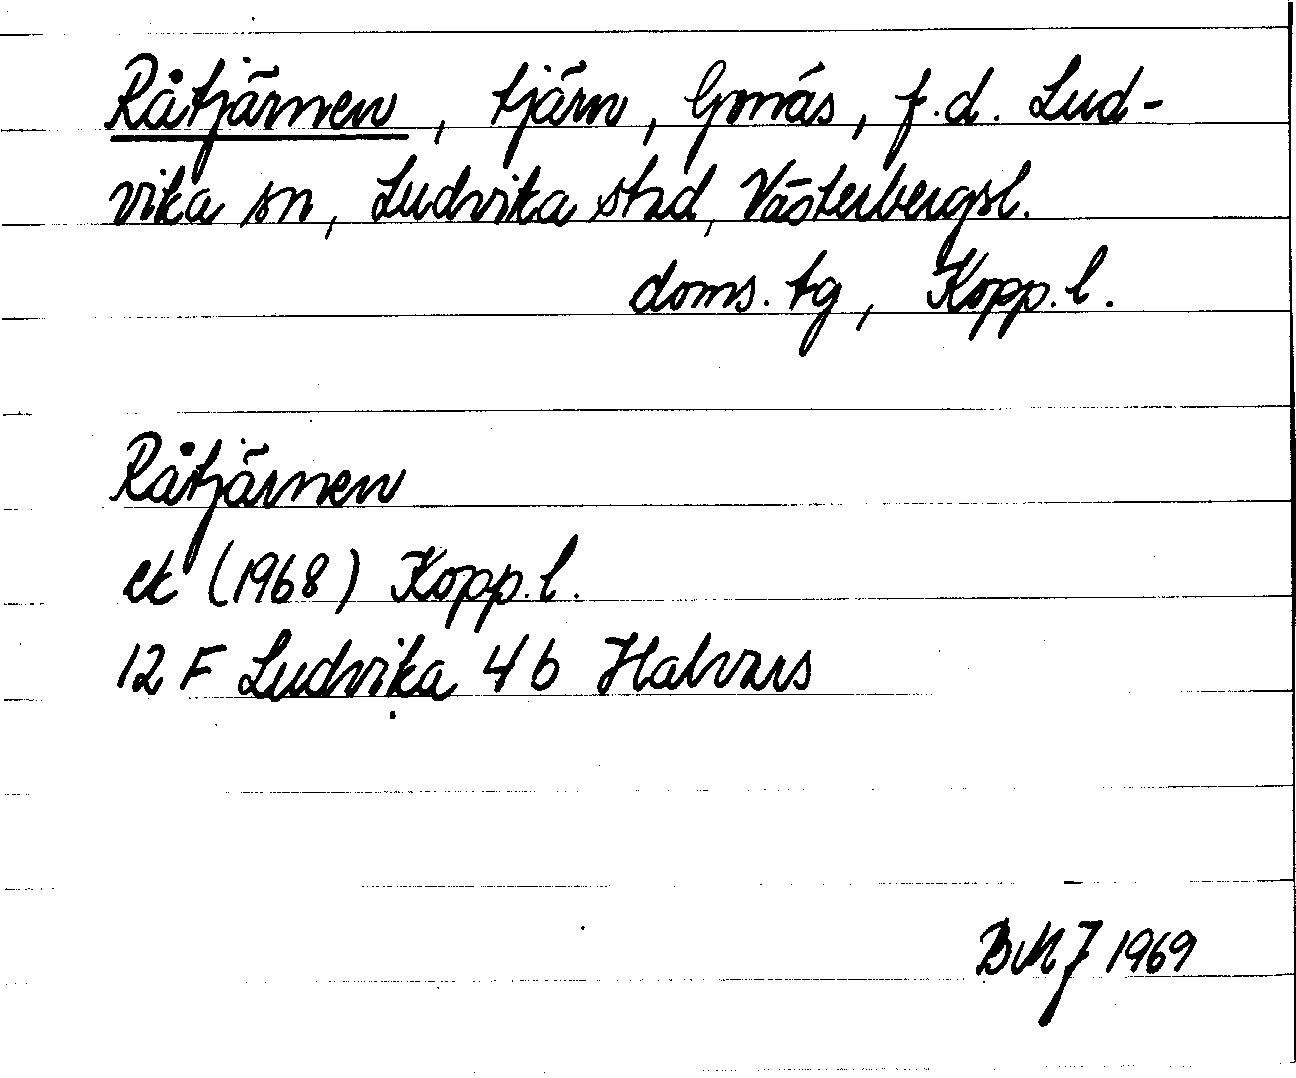 Råtjärnen, tjärn, Gonäs, f.d. Lud-
vika sn, Ludvika stad, Västerbergsl.
doms. tg, Kopp. l.
Råtjärnen
ek (1968) Kopp. l.
12 F Ludvika 4 b Halvars
BMJ 1969